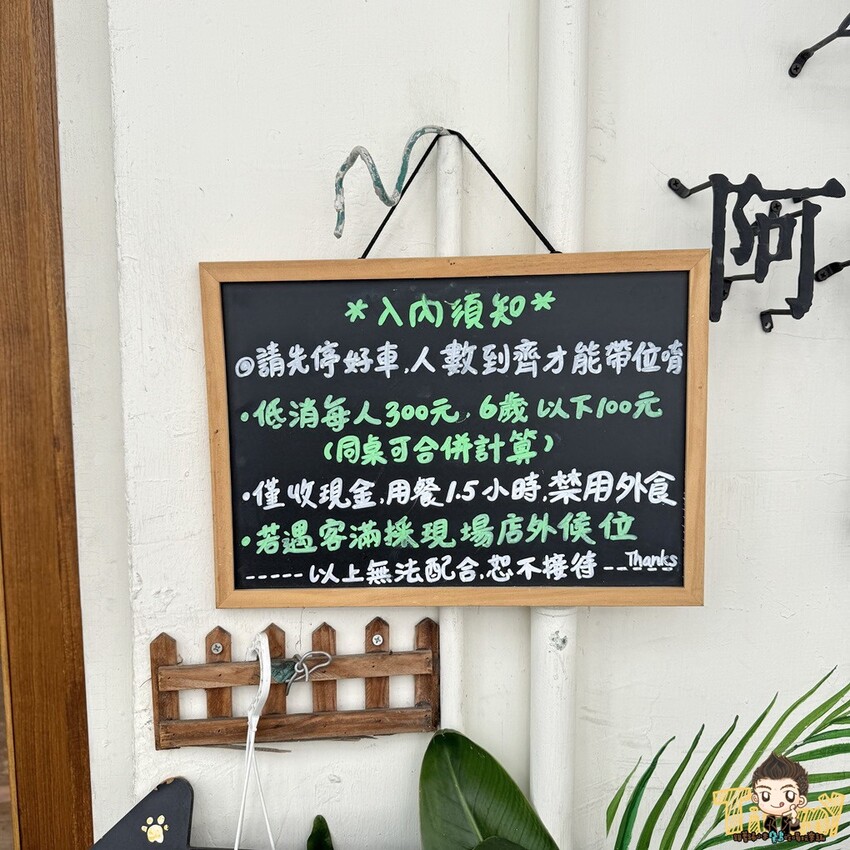 *入內須知*
◎請先停好車,人數到齊才能帶位唷
•低消每人300元,6歲以下100元
(同桌可合併計算)
•僅收現金,用餐1.5小時,禁用外食
•若遇客滿採現場店外候位
-----以上無法配合,恕不接待-----
Thanks
阿